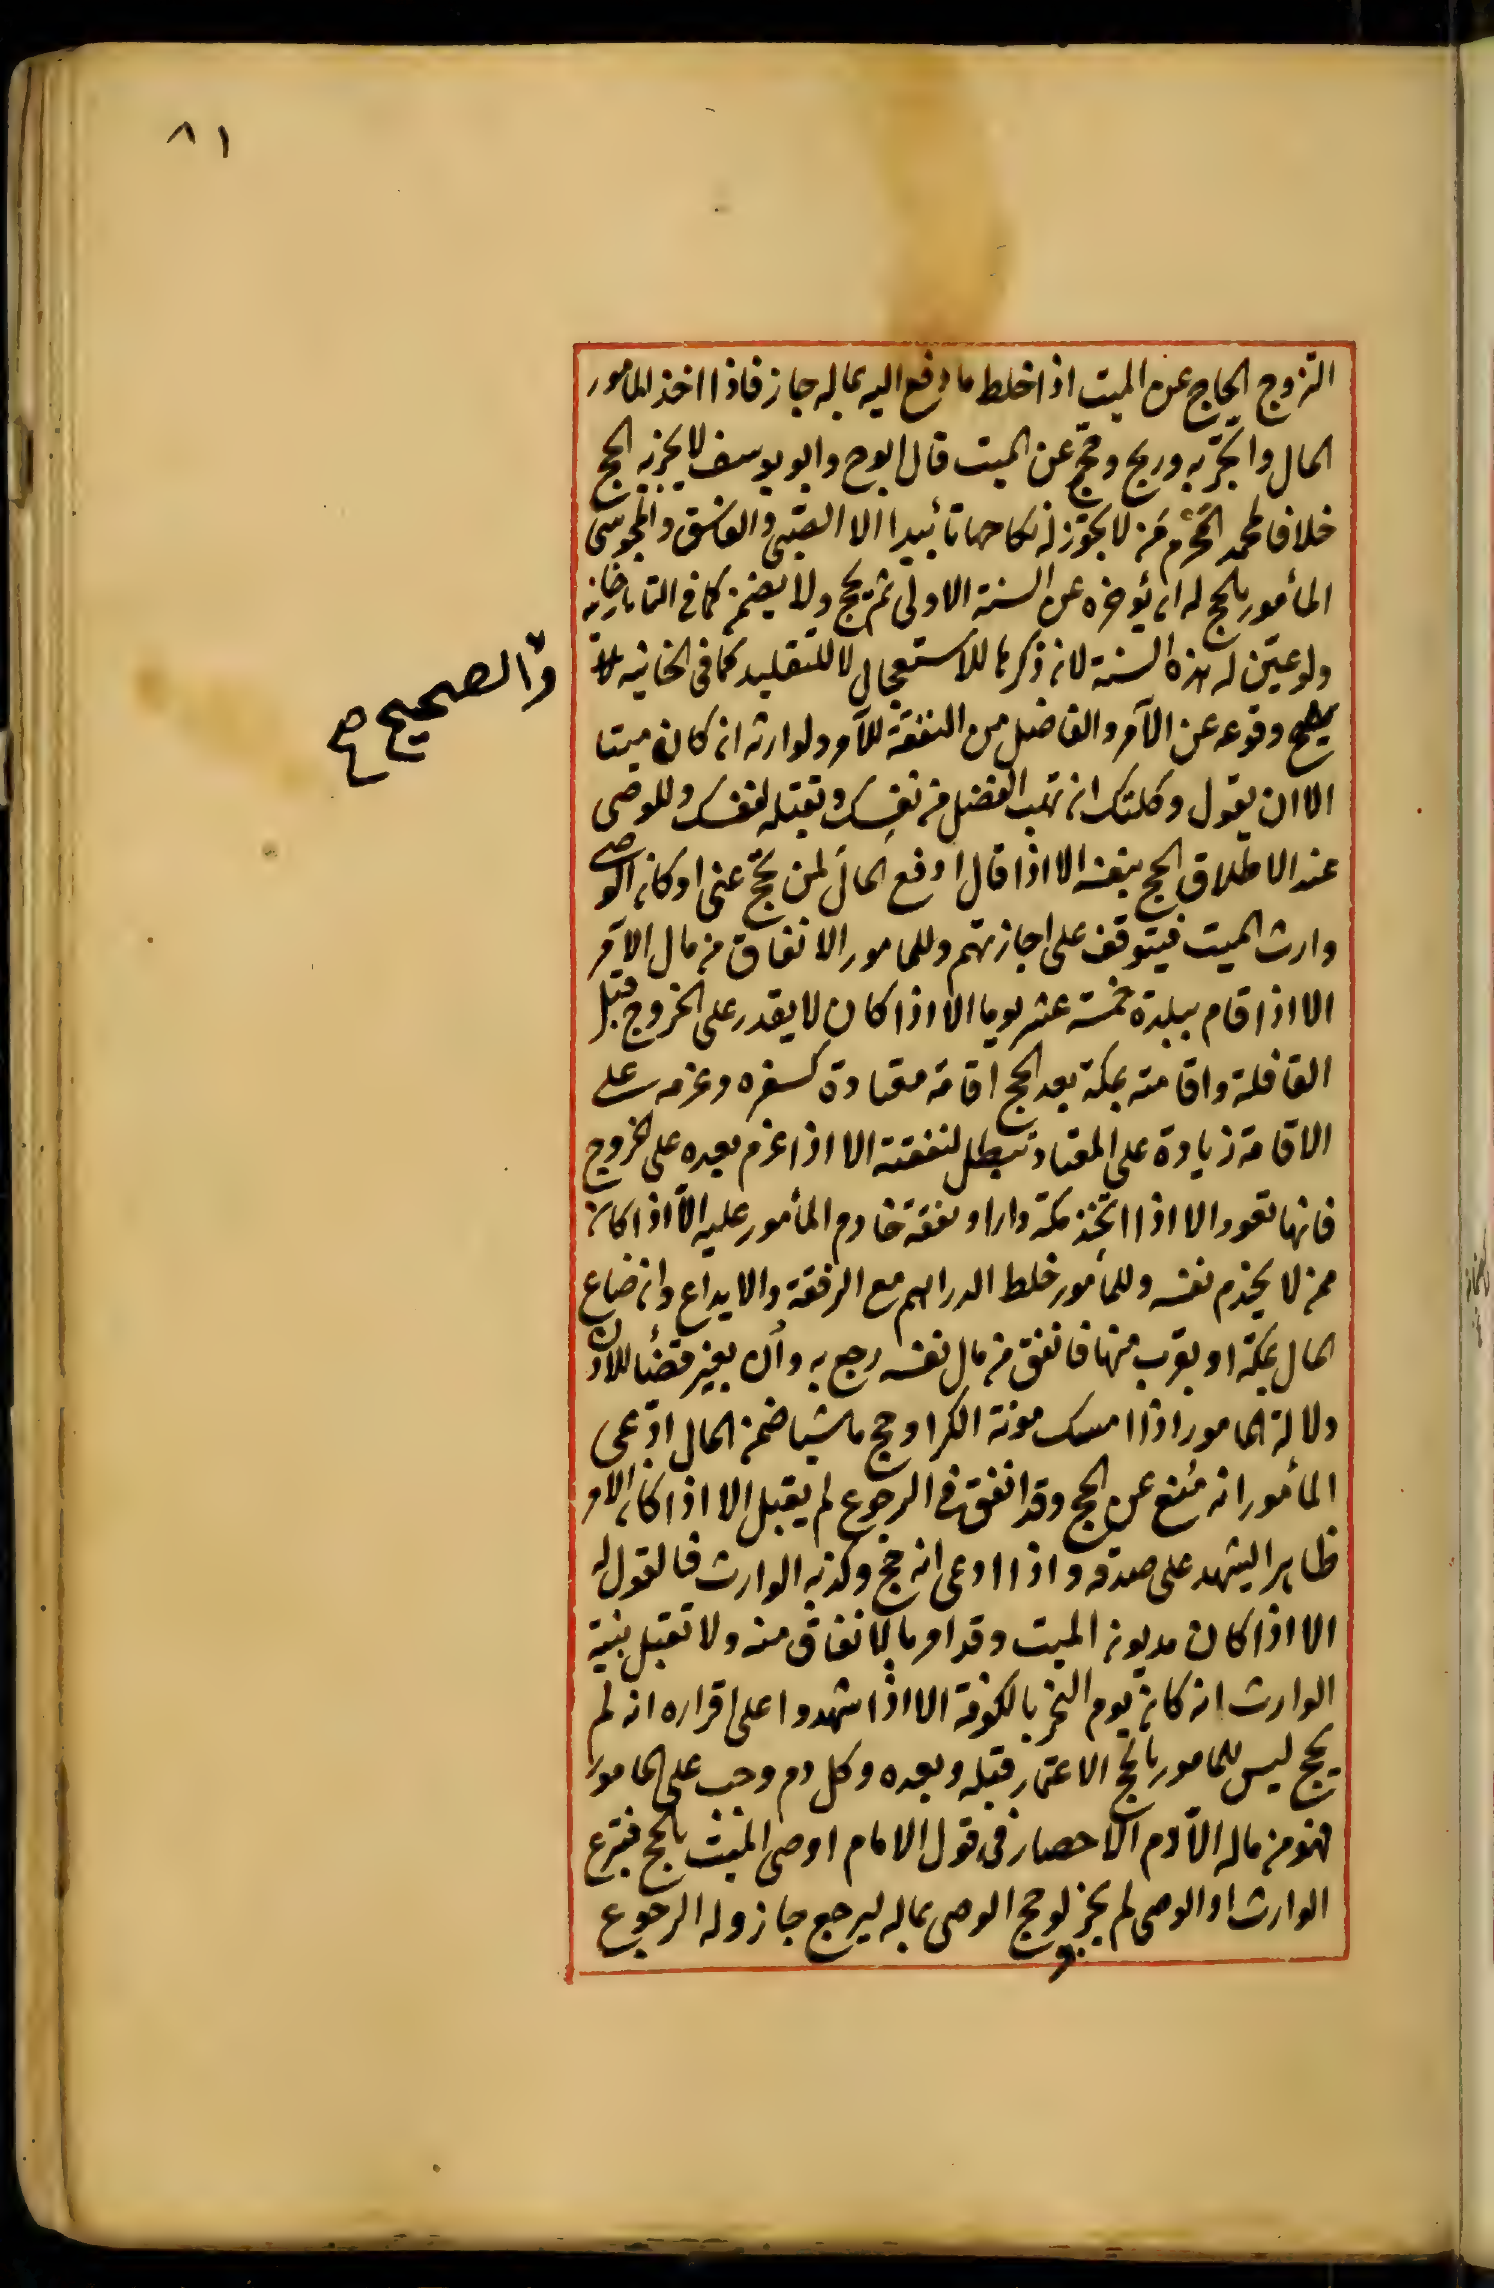 ٨١
التزوج الحاج عن الميت اذا خلط ما دفع اليه بماله جاز فاذا اخذ المأمور
المال واتجر به وربح وحج عن الميت قال ابوح وابو يوسف لا يجزيه الحج
خلافا لمحمد المحرم من لا يجوز له نكاحها تأبيدا الا الصبي والفاسق والمجوسي
المأمور بالحج له ان يؤخره عن السنة الاولى ثم يحج ولا يضمن كما في التاتارخانيه
ولو عين له هذه السنة لانه ذكرها للاستعجال لا للتقليد كما في الخانيه
والصحيح صح
وقوعه عن الآمر والفاضل من النفقة للآمر ولوارثه ان كان ميتا
الا ان يقول وكلتك ان تهب الفضل من نفسك وتقبله لنفسك وللوصي
عند الاطلاق الحج بنفسه الا اذا قال ادفع المال لمن يحج عني او كان الوصي
وارث الميت فيتوقف على اجازتهم وللمامور الانفاق من مال الآمر
الا اذا قام ببلدة خمسة عشر يوما الا اذا كان لا يقدر على الخروج قبل
القافلة واقامته بمكة بعد الحج اقامة معتادة كسفره وعزمه على
الاقامة زيادة على المعتاد تبطل لنفقته الا اذا عزم بعده على الخروج
فانها تعود الا اذا اتخذ مكة دارا ونفقة خادم المأمور عليه الا اذا كان
ممن لا يخدم نفسه وللمأمور خلط الدراهم مع الرفقة والايداع وان ضاع
المال بمكة او بقرب منها فانفق من مال نفسه رجع به وان بغير قضأ للاذن
دلالة المامور اذا امسك مونة الكرا وحج ماشيا ضمن المال ادعى
المأمور انه منع عن الحج وقد انفق في الرجوع لم يقبل الا اذا كان الامر
ظاهرا ليشهد على صدقه واذا ادعى انه حج وكذبه الوارث فالقول له
الا اذا كان مديون الميت وقد امر بالانفاق منه ولا تقبل بينة
الوارث انه كان يوم النحر بالكوفة الا اذا شهدوا على اقراره انه لم
يحج ليس للمامور بالحج الاعتمار قبله وبعده وكل دم وجب على المامور
فهو من ماله الا دم الاحصار في قول الامام اوصى الميت بالحج فتبرع
الوارث او الوصي لم يجز ولو حج الوصي بماله ليرجع جاز وله الرجوع